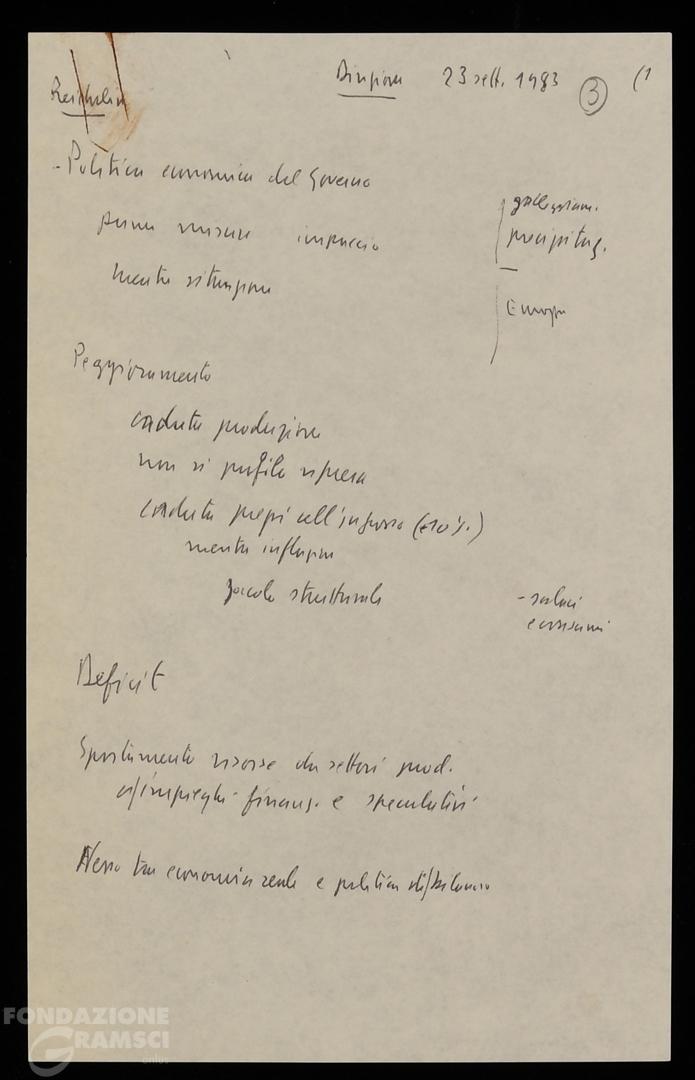 Reichlin
Direzione 23 sett. 1983 3 (1
- Politica economica del Governo
prime misure impaccio
mentre situazione
precipitaz.
Europa
Peggioramento
caduta produzione
non si profila ripresa
caduta prezzi all'ingrosso (±10%)
mentre inflazione
strutturale
- salari
e consumi
Deficit
Spostamento risorse da settori prod.
a/impieghi finanz. e speculativi
Nesso tra economia reale e politica di/bilancio
FONDAZIONE
GRAMSCI
onlus